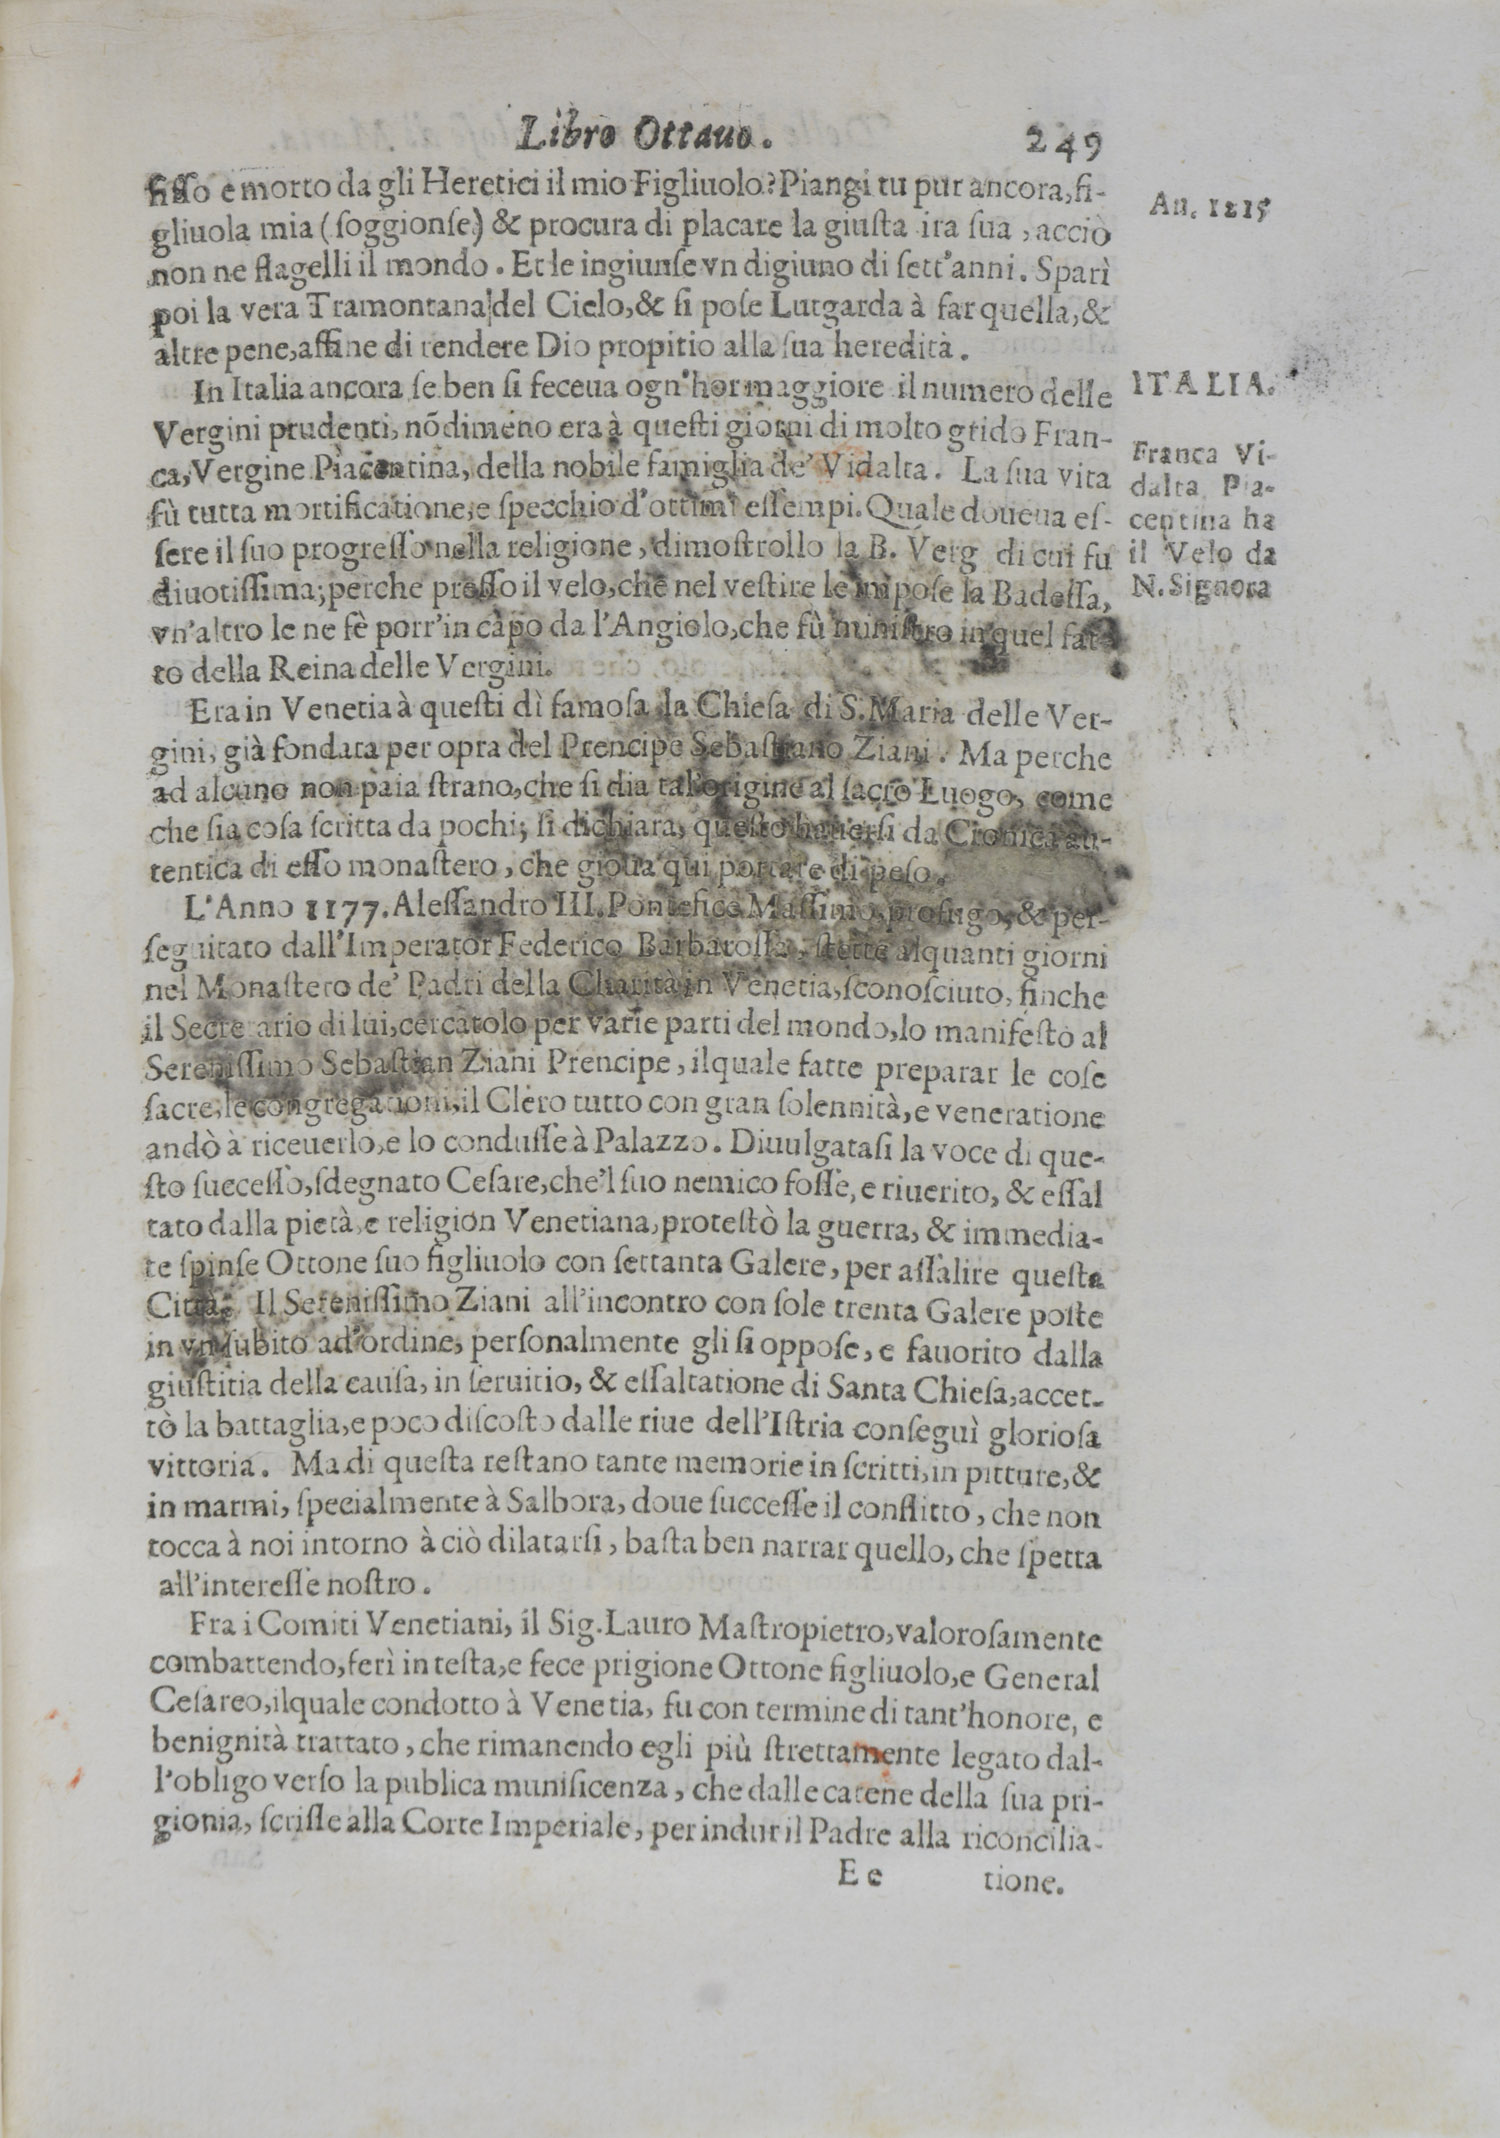 Libro Ottauo. 249
fisso e morto da gli Heretici il mio Figliuolo? Piangi tu pur ancora, fi-
gliuola mia (soggionse) & procura di placare la giusta ira sua, acciò
non ne flagelli il mondo. Et le ingiunse vn digiuno di sett'anni. Sparì
poi la vera Tramontana del Cielo, & si pose Lutgarda à far quella, &
altre pene, affine di rendere Dio propitio alla sua heredità.
An. 1215
In Italia ancora se ben si feceua ogn'hor maggiore il numero delle
Vergini prudenti, nõdimeno era à questi giorni di molto grido Fran-
ca, Vergine Piacentina, della nobile famiglia de' Vidalta. La sua vita
fù tutta mortificatione, e specchio d'ottimi essempi. Quale doueua es-
sere il suo progresso nella religione, dimostrollo la B. Verg di cui fu
diuotissima; perche presso il velo, che nel vestire le impose la Badessa,
vn'altro le ne fè porr'in capo da l'Angiolo, che fù ministro in quel fat-
to della Reina delle Vergini.
ITALIA.
Franca Vi-
dalta Pia-
centina ha
il Velo da
N. Signora
Era in Venetia à questi dì famosa la Chiesa di S. Maria delle Ver-
gini, già fondata per opra del Prencipe Sebastiano Ziani. Ma perche
ad alcuno non paia strano, che si dia tal'origine al sacro Luogo, come
che sia cosa scritta da pochi; si dichiara, questo hauersi da Cronica au-
tentica di esso monastero, che gioua qui portare di peso.
L'Anno 1177. Alessandro III. Pontefice Massimo, profugo, & per-
seguitato dall'Imperator Federico Barbarossa, stette alquanti giorni
nel Monastero de' Padri della Charità in Venetia, sconosciuto, finche
il Secretario di lui, cercatolo per varie parti del mondo, lo manifestò al
Serenissimo Sebastian Ziani Prencipe, ilquale fatte preparar le cose
sacre, le congregationi, il Clero tutto con gran solennità, e veneratione
andò à riceuerlo, e lo condusse à Palazzo. Diuulgatasi la voce di que-
sto successo, sdegnato Cesare, che'l suo nemico fosse, e riuerito, & essal
tato dalla pietà, e religion Venetiana, protestò la guerra, & immedia-
te spinse Ottone suo figliuolo con settanta Galere, per assalire questa
Città. Il Serenissimo Ziani all'incontro con sole trenta Galere poste
in vn subito ad'ordine, personalmente gli si oppose, e fauorito dalla
giustitia della causa, in seruitio, & essaltatione di Santa Chiesa, accet-
tò la battaglia, e poco discosto dalle riue dell'Istria conseguì gloriosa
vittoria. Ma di questa restano tante memorie in scritti, in pitture, &
in marmi, specialmente à Salbora, doue successe il conflitto, che non
tocca à noi intorno à ciò dilatarsi, basta ben narrar quello, che spetta
all'interesse nostro.
Fra i Comiti Venetiani, il Sig. Lauro Mastropietro, valorosamente
combattendo, ferì in testa, e fece prigione Ottone figliuolo, e General
Cesareo, ilquale condotto à Venetia, fu con termine di tant'honore, e
benignità trattato, che rimanendo egli più strettamente legato dal-
l'obligo verso la publica munificenza, che dalle catene della sua pri-
gionia, scrisse alla Corte Imperiale, per indur il Padre alla riconcilia-
Ee tione.